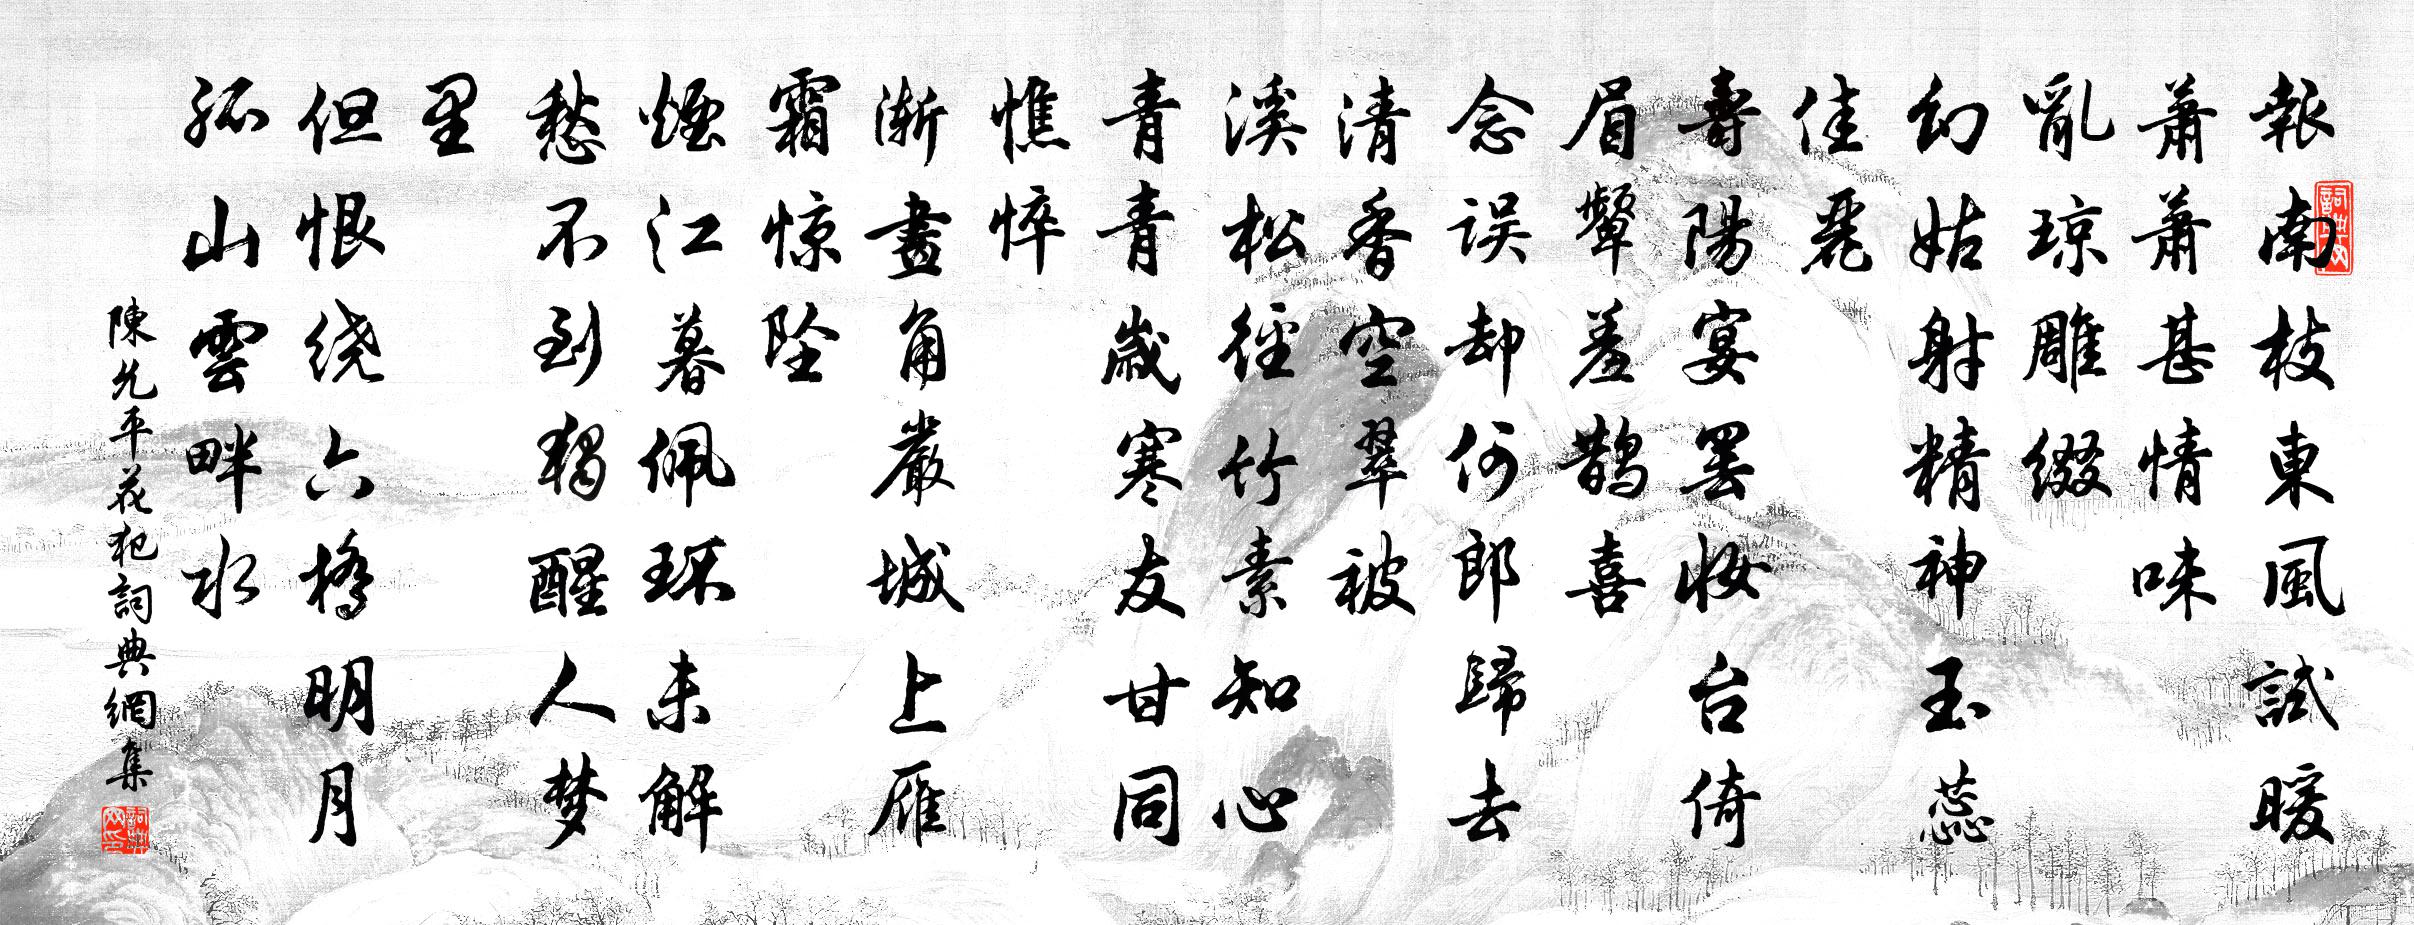 報南枝東風試暖
萧萧甚情味
亂琼雕缀
幻姑射精神玉蕊
佳麗
壽陽宴罢妆台倚
眉颦羞鹊喜
念误却何郎歸去
清香空翠被
溪松徑竹素知心
青青歲寒友甘同
憔悴
漸畫角嚴城上雁
霜惊坠
煙江暮佩环未解
愁不到獨醒人梦
里
但恨绕六橋明月
孤山雲畔水
陳允平花犯詞典網集